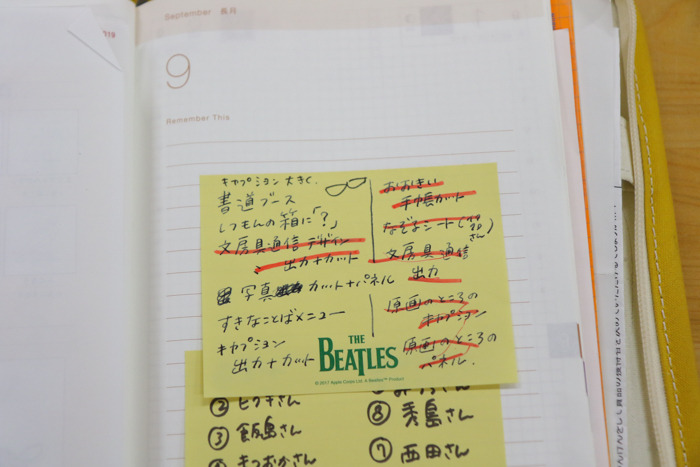 2019
September 長月
9
Remember This
キャプション 大きく
書道ブース
しつもんの箱に「?」
文房具通信 デザイン
出力+カット
写真 カット+パネル
すきなことばメニュー
キャプション
出力+カット
おおきい
手帳カット
なぞなぞシート(
さん)
文房具通信
出力
原画のところの
キャプション
原画のところの
パネル.
THE
BEATLES
© 2011 Apple Corps Ltd. A Beatles™ Product
②
さん
③ 飯島さん
きつおかさん
さん
⑧ 秀島さん
⑦ 西田さん